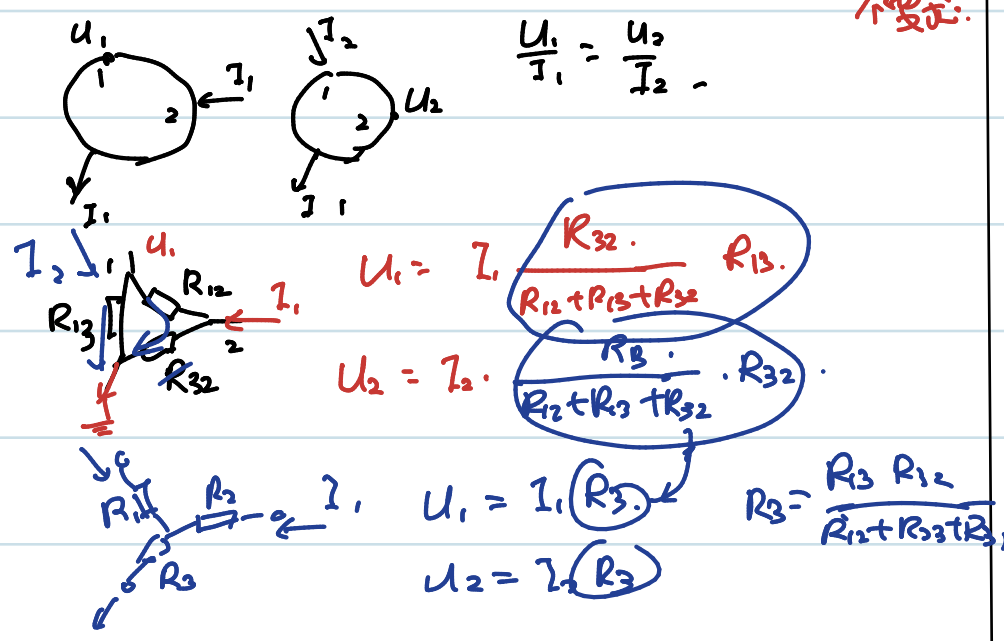 变
U₁ 1 2 I₁ I₁
I₂ 1 2 U₂ I₁
U₁/I₁ = U₂/I₂
I₂ 1 U₁ R₁₂ I₁ R₁₃ 2 R₃₂
U₁ = I₁ R₃₂/(R₁₂+R₁₃+R₃₂) R₁₃.
U₂ = I₂. R₁₃/(R₁₂+R₁₃+R₃₂) . R₃₂.
R₁ R₂ I₁ R₃
U₁ = I₁ R₃.
R₃ = R₁₃ R₃₂/(R₁₂+R₂₃+R₃
U₂ = I₂ R₃